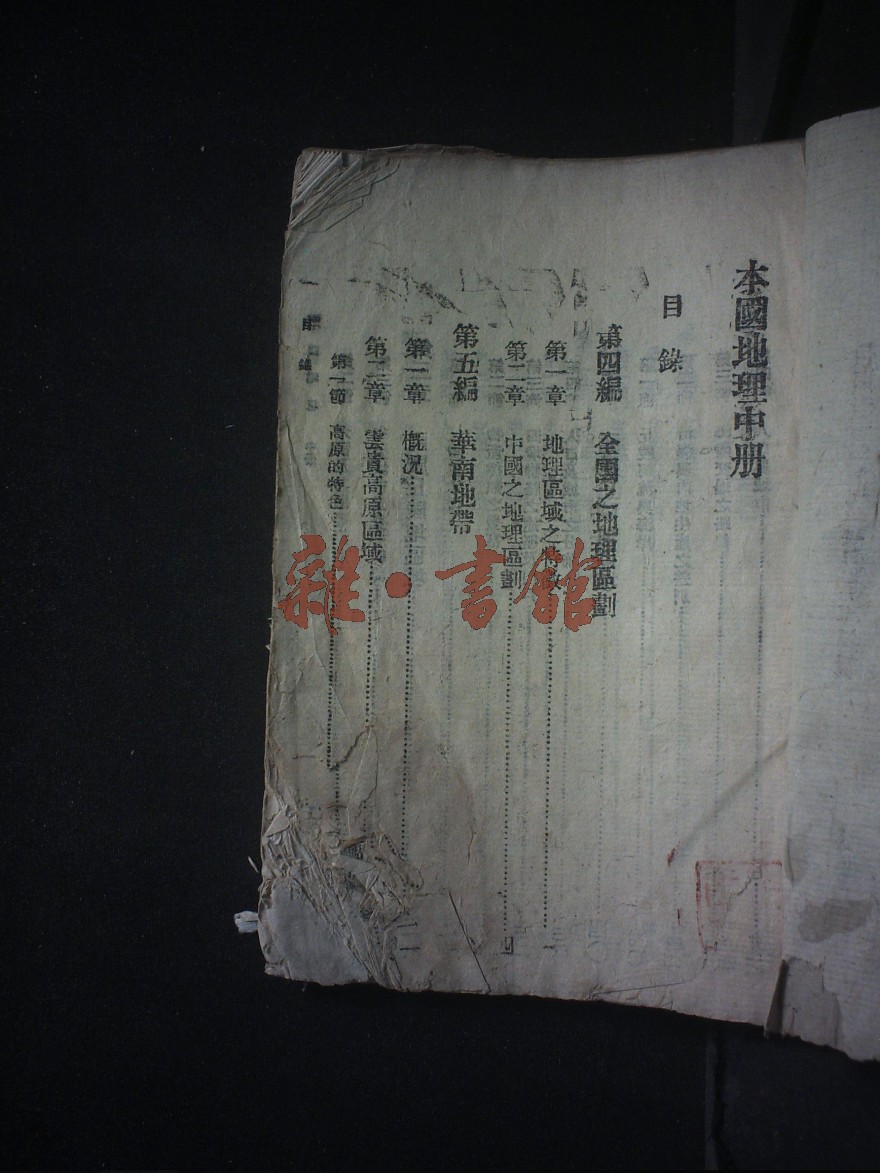 本國地理中册
目錄
第四編 全國之地理區劃
第一章 地理區域之特
第二章 中國之地理區劃 四
第五編 華南地帶
第一章 概况
第二章 雲貴高原區域
第一節 高原的特色
目錄
一
雜·書館